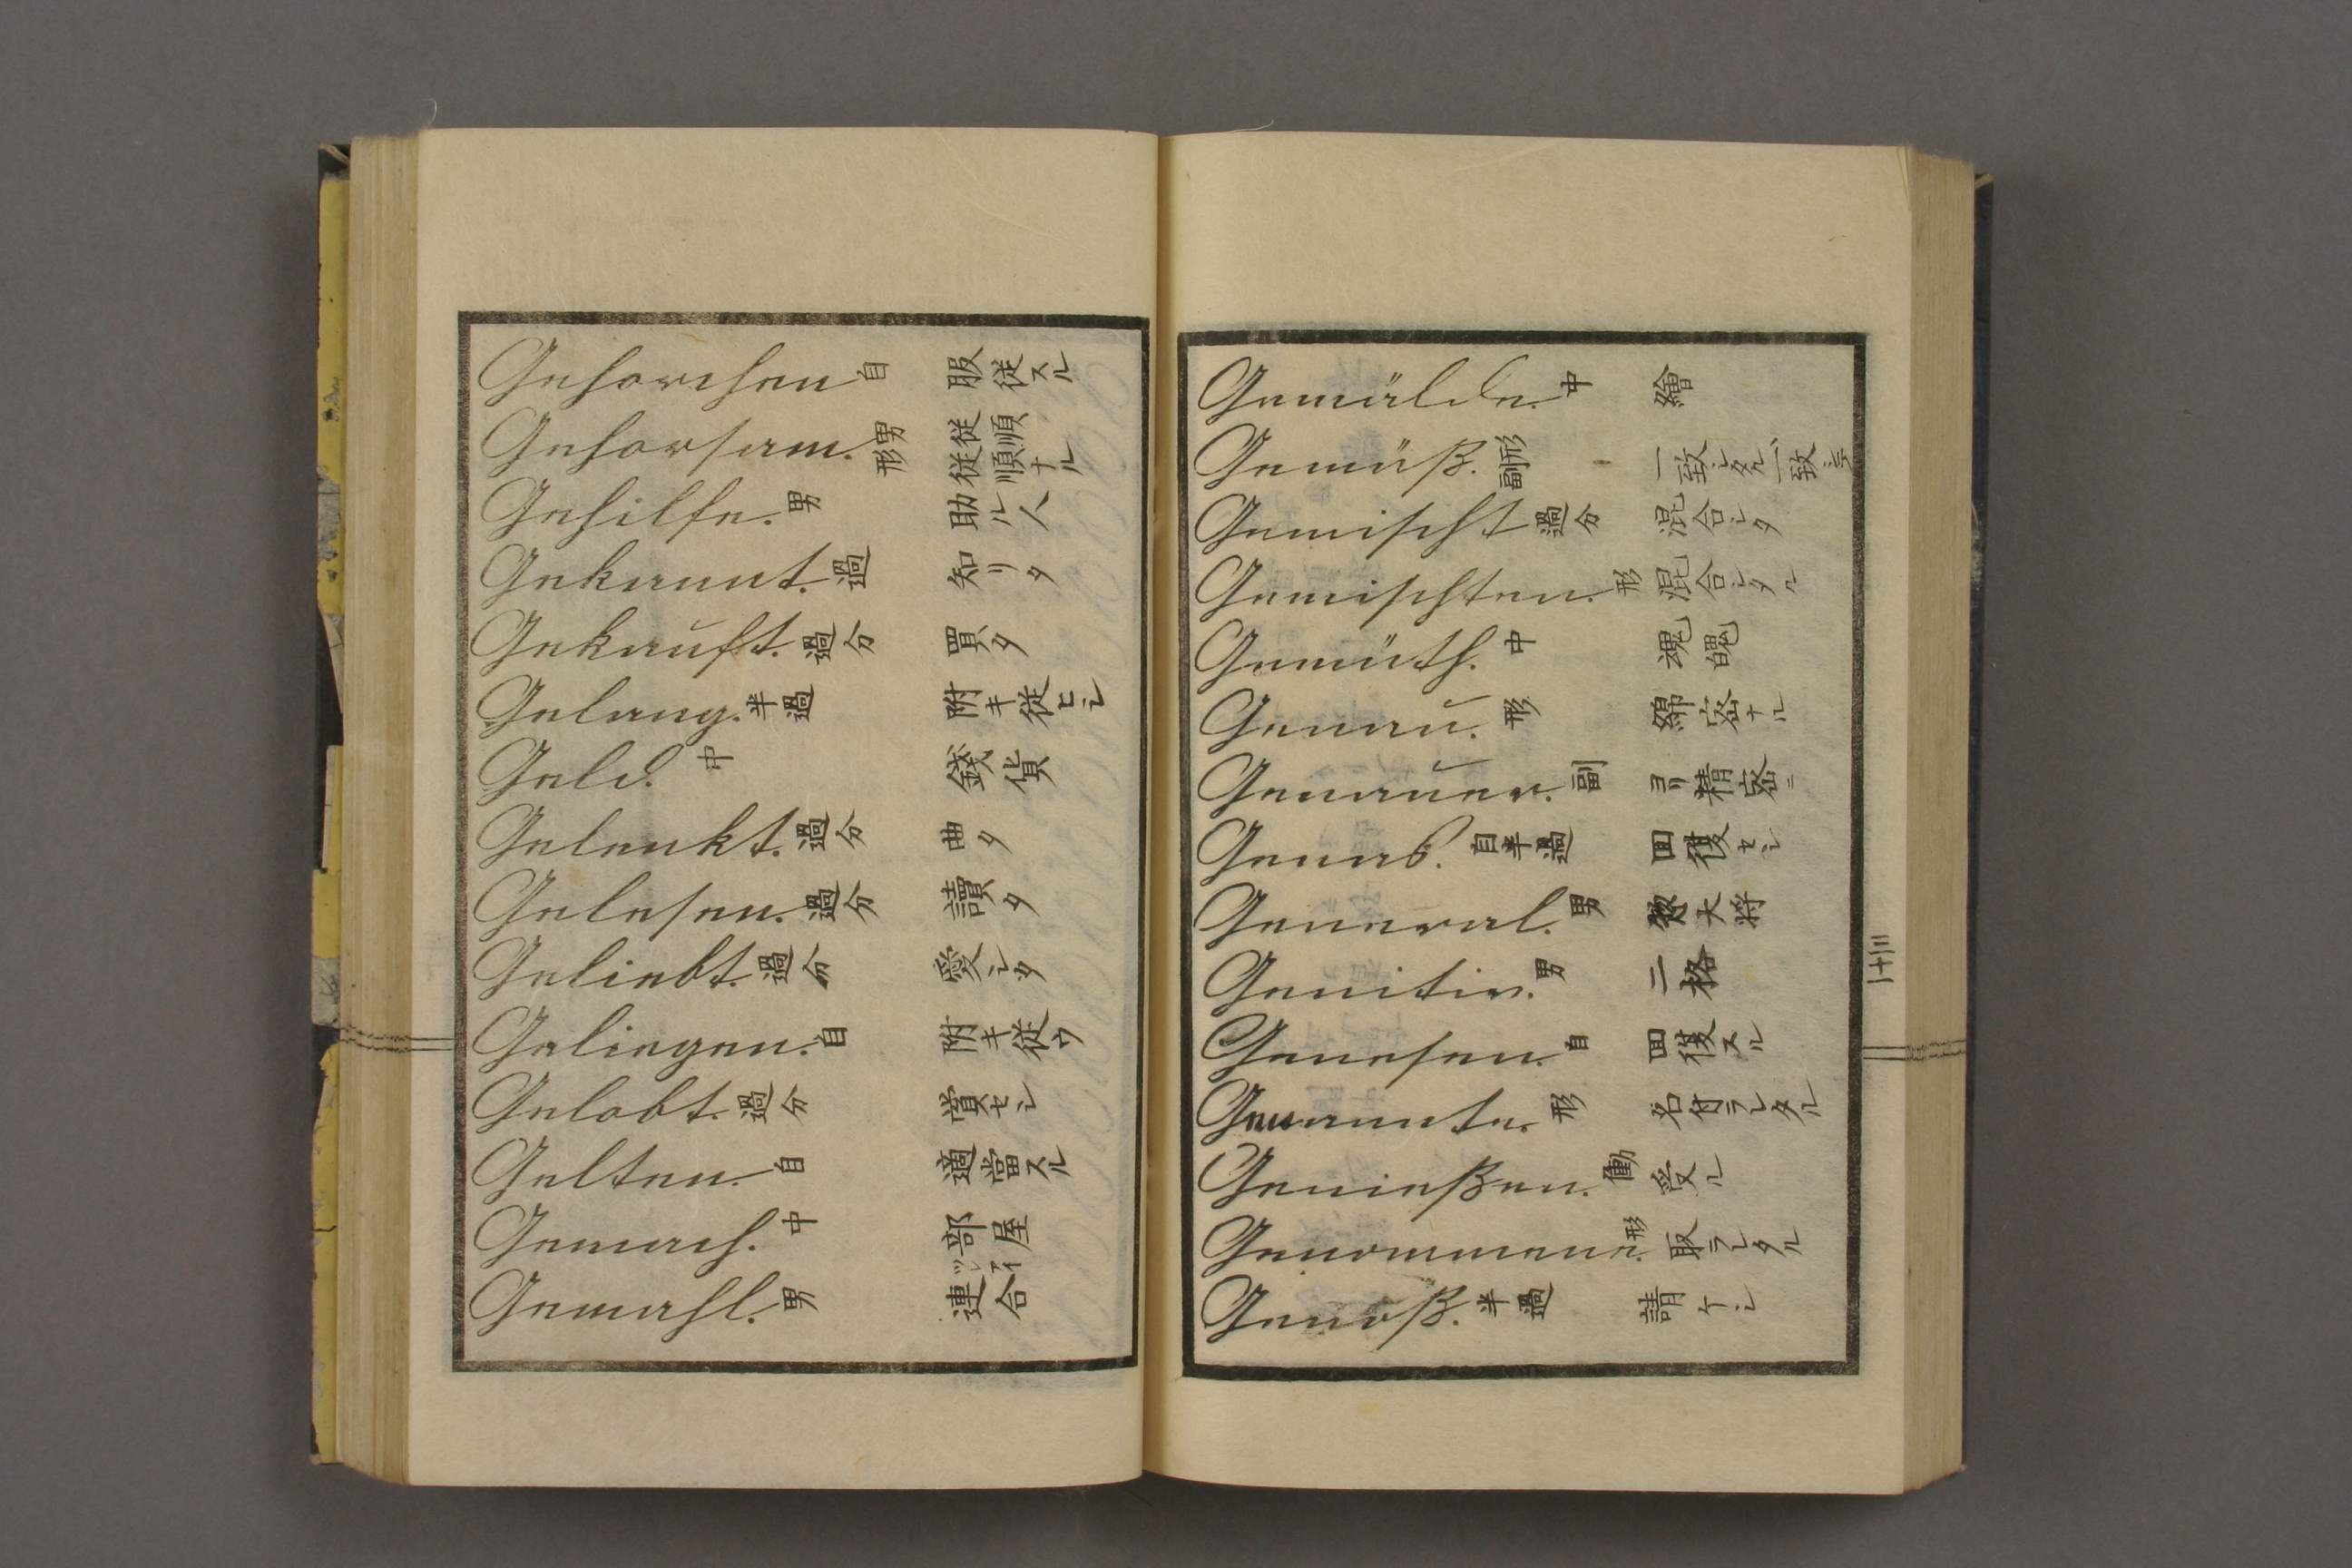 Gehorchen 自 服従スル
Gehorsam. 男形 従順従順ナル
Gehilfe. 男 助ル人
Gekannt. 過 知リタ
Gekauft. 過分 買タ
Gelang. 半過 附キ従ヒシ
Geld. 中 錢貨
Gelenkt. 過分 曲タ
Gelesen. 過分 讀タ
Geliebt. 過分 愛シタ
Geliegen. 自 附キ従ウ
Gelobt. 過分 賞セシ
Gelten. 自 適當スル
Gemach. 中 部屋
Gemahl. 男 連合ツレアイ
Gemälde. 中 繪
Gemäß. 形副 一致シタル一致シテ
Gemischt 過分 混合シタ
Gemischten. 形 混合シタル
Gemüth. 中 魂魄
Genau. 形 綿密ナル
Genauer. 副 ヨリ精密ニ
Genas. 自半過 回復セシ
General. 男 惣大将
Genitiv. 男 二格
Genesen. 自 回復スル
Genannte. 形 名付ラレタル
Genießen. 働 受ル
Genommene. 形 取ラレタル
Genoß. 半過 請ケシ
三十一